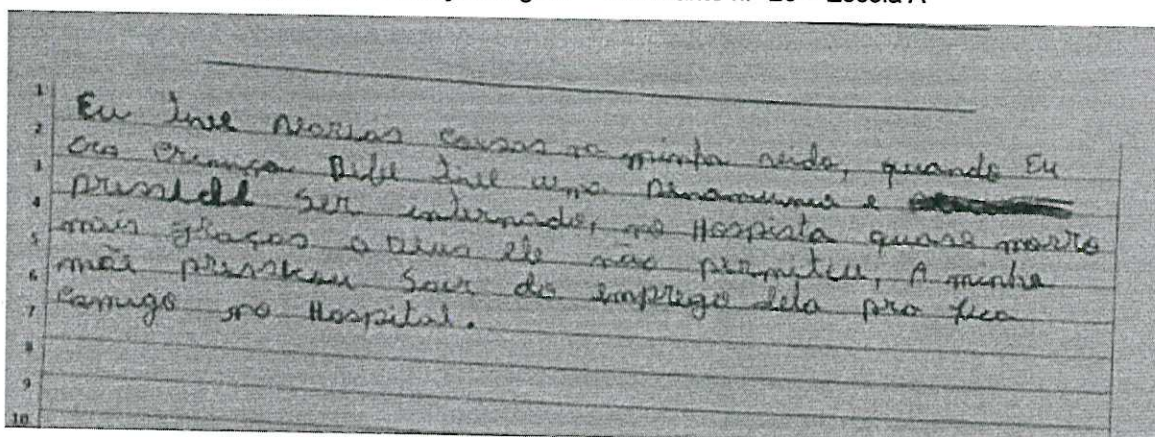 Eu tive varias coisas na minha vida, quando Eu
era criança Bebe tive uma Pnamumia e
prusisei ser internado, no Hospista quase morro
mais graças a Deus ele não permiteu, A minha
mãe prissisou Sair do emprego dela pra fica
comigo no Hospital.
1
2
3
4
5
6
7
8
9
10